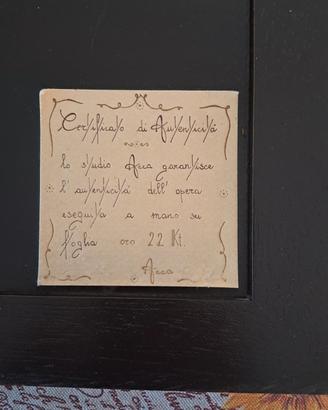 Certificato di Autenticità
lo studio Arca garantisce
l'autenticità dell'opera
eseguita a mano su
foglia oro 22 Kt.
Arca